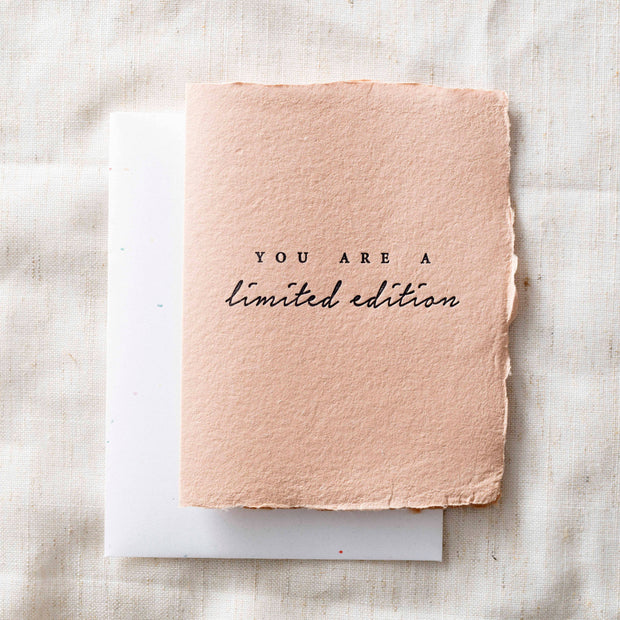 YOU ARE A
limited edition